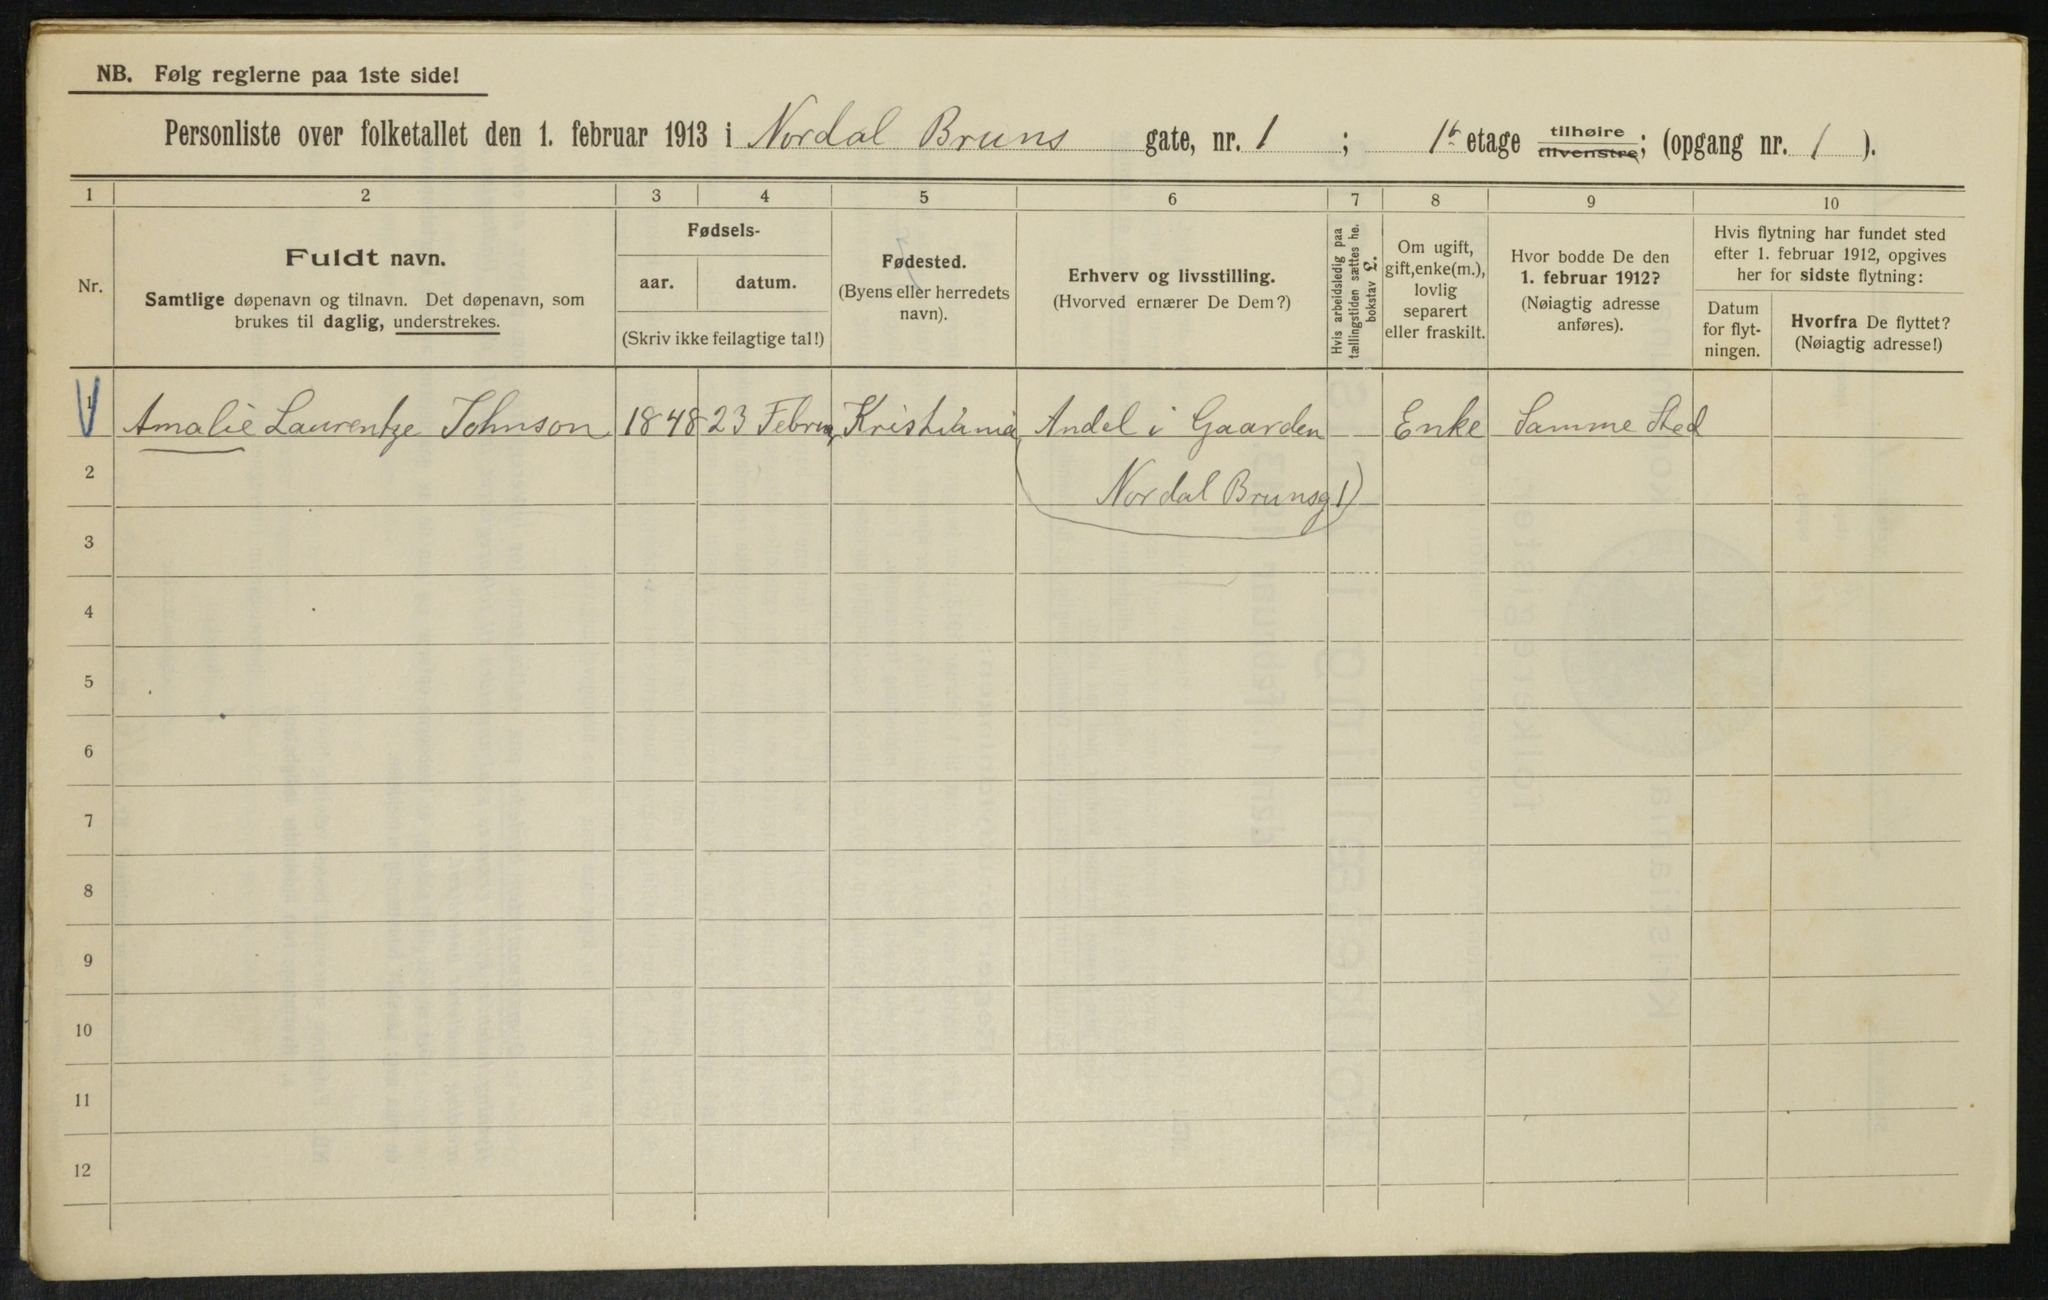 NB. Følg reglerne paa 1ste side!
Personliste over folketallet den 1. februar 1913 i Nordal Bruns gate, nr. 1 ; 1ste etage tilhøire tilvenstre; (opgang nr. 1 ).
1 2 3 4 5 6 7 8 9 10
Nr.
Fuldt navn.
Samtlige døpenavn og tilnavn. Det døpenavn, som
brukes til daglig, understrekes.
Fødsels-
aar. datum.
(Skriv ikke feilagtige tal!)
Fødested.
(Byens eller herredets
navn).
Erhverv og livsstilling.
(Hvorved ernærer De Dem?)
Hvis arbeidsledig paa
tællingstiden sættes he.
bokstav L.
Om ugift,
gift,enke(m.),
lovlig
separert
eller fraskilt.
Hvor bodde De den
1. februar 1912?
(Nøiagtig adresse
anføres).
Hvis flytning har fundet sted
efter 1. februar 1912, opgives
her for sidste flytning:
Datum
for flyt-
ningen.
Hvorfra De flyttet?
(Nøiagtig adresse!)
1 Amalie Laurentze Johnson 1848 23 Februar Kristiania Andel i Gaarden Enke Samme Sted
2 (Nordal Brunsg 1)
3
4
5
6
7
8
9
10
11
12